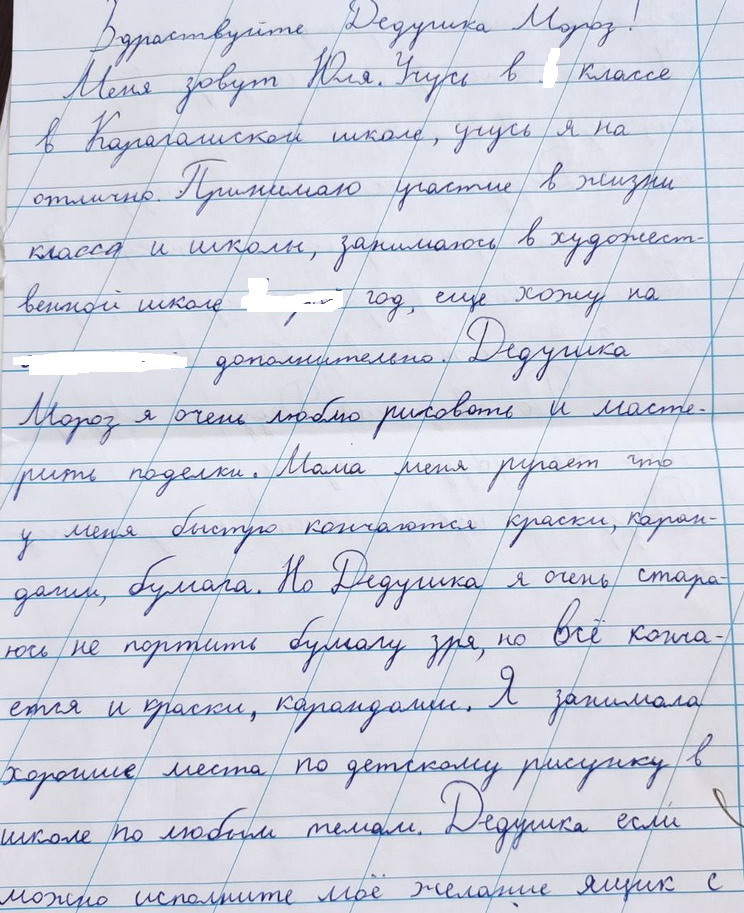 Здраствуйте Дедушка Мороз!
Меня зовут Юля. Учусь в классе
в Карагашской школе, учусь я на
отлично. Принимаю участие в жизни
класса и школы, занимаюсь в художест-
венной школе год, еще хожу на
дополнительно. Дедушка
Мороз я очень люблю рисовать и масте-
рить поделки. Мама меня ругает что
у меня быстро кончаются краски, каран-
даши, бумага. Но Дедушка я очень стара-
юсь не портить бумагу зря, но всё конча-
ется и краски, карандаши. Я занимала
хорошие места по детскому рисунку в
школе по любым темам. Дедушка если
можно исполните моё желание ящик с